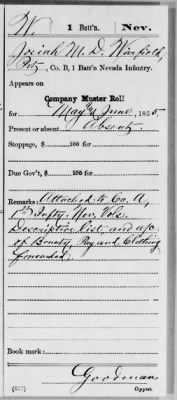 W. 1 Batt'n. Nev.
Josiah M. D. Warfield,
Pvt, Co. B, 1 Batt'n Nevada Infantry.
Appears on
Company Muster Roll
for May & June, 1865.
Present or absent Absent.
Stoppage, $ 100 for
Due Gov't, $ 100 for
Remarks: Attached to Co. A,
1st Infty. Nev. Vols.
Descriptive list, and a/c
of Bounty, Pay and Clothing
forwarded.
Book mark:
Goodman
Copyist.